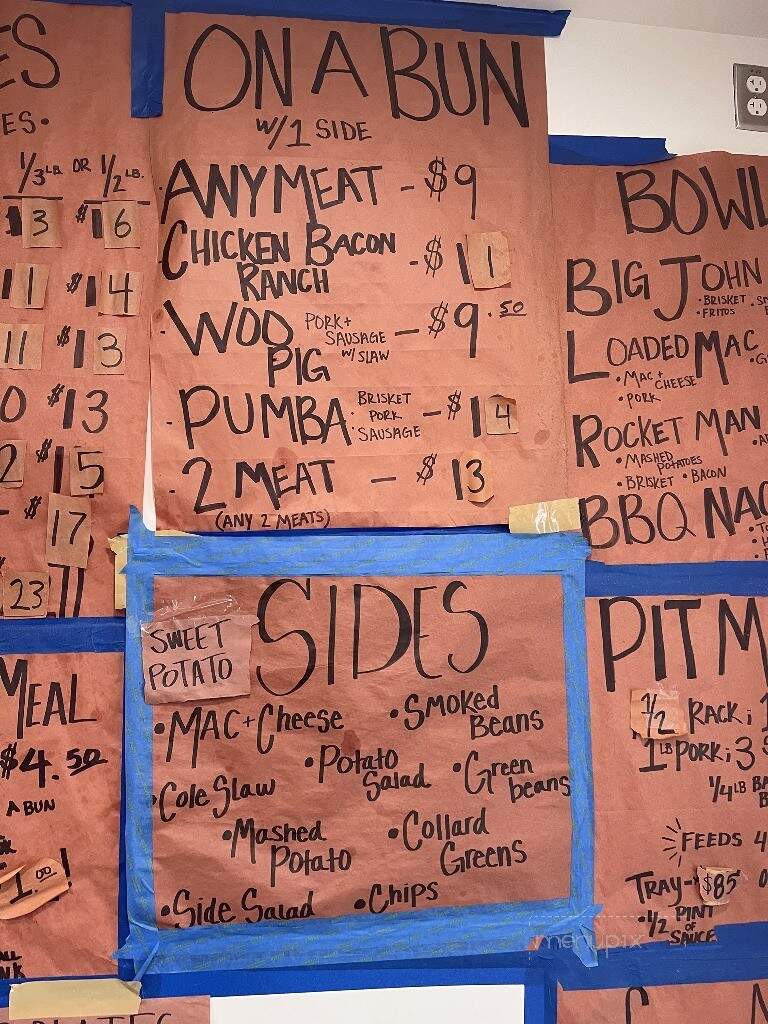 ES
ES.
1/3 LB. OR 1/2 LB.
13 $16
11 $14
11 $13
0 $13
2 $15
$17
23
ON A BUN
W/1 SIDE
· ANY MEAT - $9
· CHICKEN BACON RANCH - $11
· WOO PIG PORK + SAUSAGE W/ SLAW - $9.50
· PUMBA BRISKET · PORK · SAUSAGE - $14
· 2 MEAT - $13
(ANY 2 MEATS)
BOWL
BIG JOHN
• BRISKET
• FRITOS
LOADED MAC
• MAC + CHEESE
• PORK
ROCKET MAN
• MASHED POTATOES
• BRISKET • BACON
BBQ NAC
MEAL
$4.50
A BUN
1.00!
SWEET POTATO
SIDES
• MAC + Cheese
• Smoked Beans
• Potato Salad
• Green beans
• Cole Slaw
• Mashed Potato
• Collard Greens
• Side Salad
• Chips
PIT M
1/2 RACK; 1
1 LB PORK; 3 S
1/4 LB
FEEDS 4
TRAY - $85
• 1/2 PINT OF SAUCE
menupix